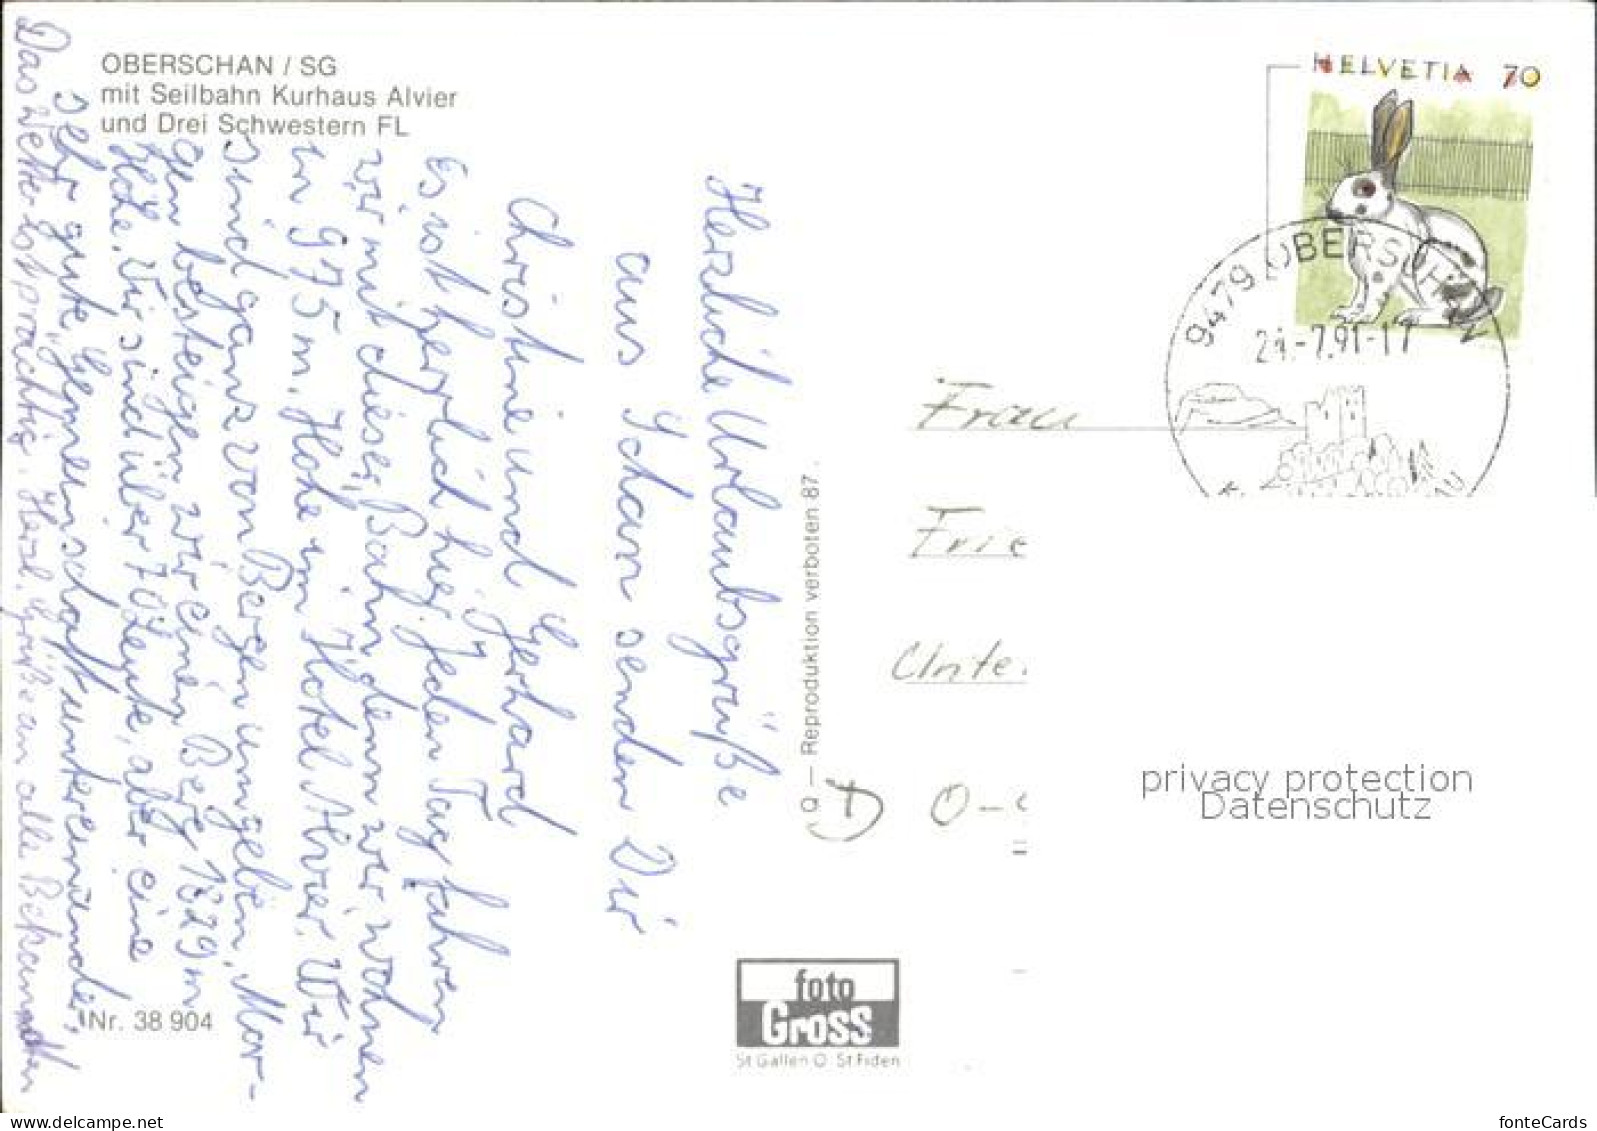 OBERSCHAN / SG
mit Seilbahn Kurhaus Alvier
und Drei Schwestern FL
Herzliche Urlaubsgrüße
aus Schan senden Dir
Christine und Gerhard
Es ist herrlich hier. Jeden Tag fahren
wir mit dieser Bahn, denn wir wohnen
in 975 m. Höhe im Hotel Alvier. Wir
sind ganz von Bergen umgeben. Mor-
gen besteigen wir einen Berg 1829 m
Höhe. Wir sind über 70 Leute, aber eine
sehr gute Gemeinschaft untereinander,
Das Wetter ist prächtig. Herzl. Grüße an alle Bekannten
Nr. 38 904
Q — Reproduktion verboten 87.
foto
Gross
St Gallen O St Fiden
HELVETIA 70
9479 OBERSCHAN
-7.91-17
Frau
Frie
Unte
D O-
privacy protection
Datenschutz
https://www.delcampe.net
fonteCards